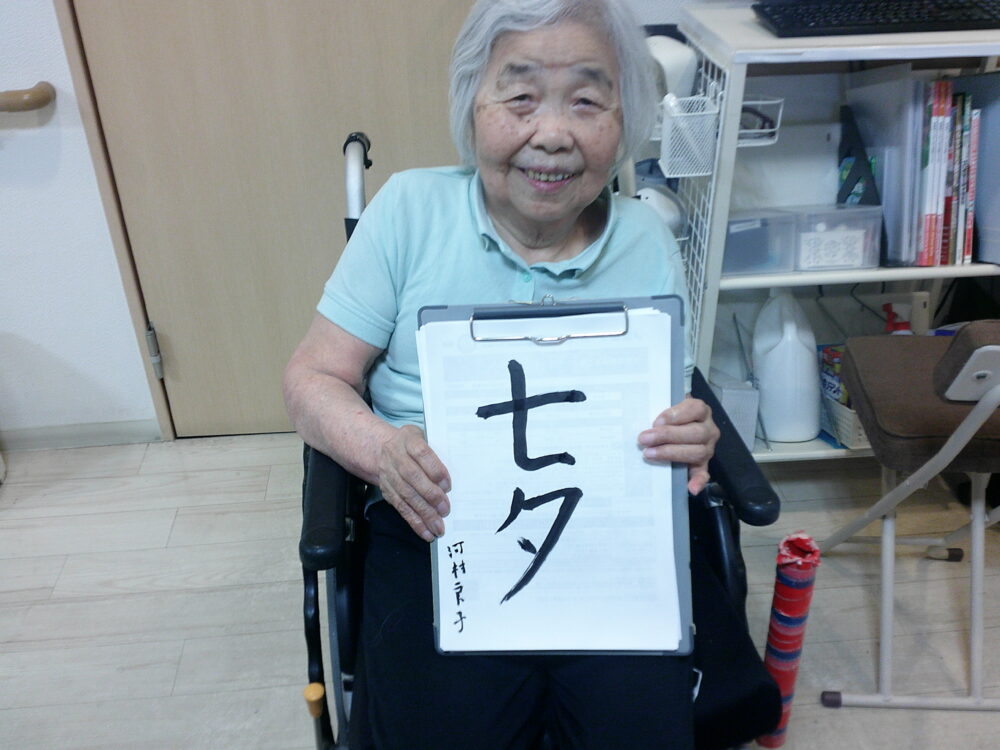 七夕
河村良子